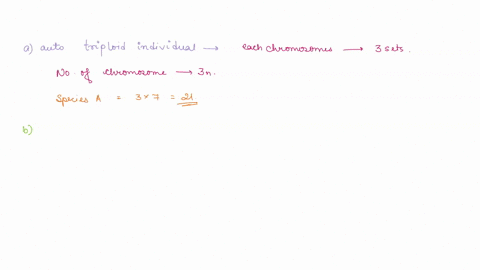 a) auto triploid individual → each chromosomes → 3 sets.
No. of chromosome → 3n.
Species A = 3 × 7 = 21
b)